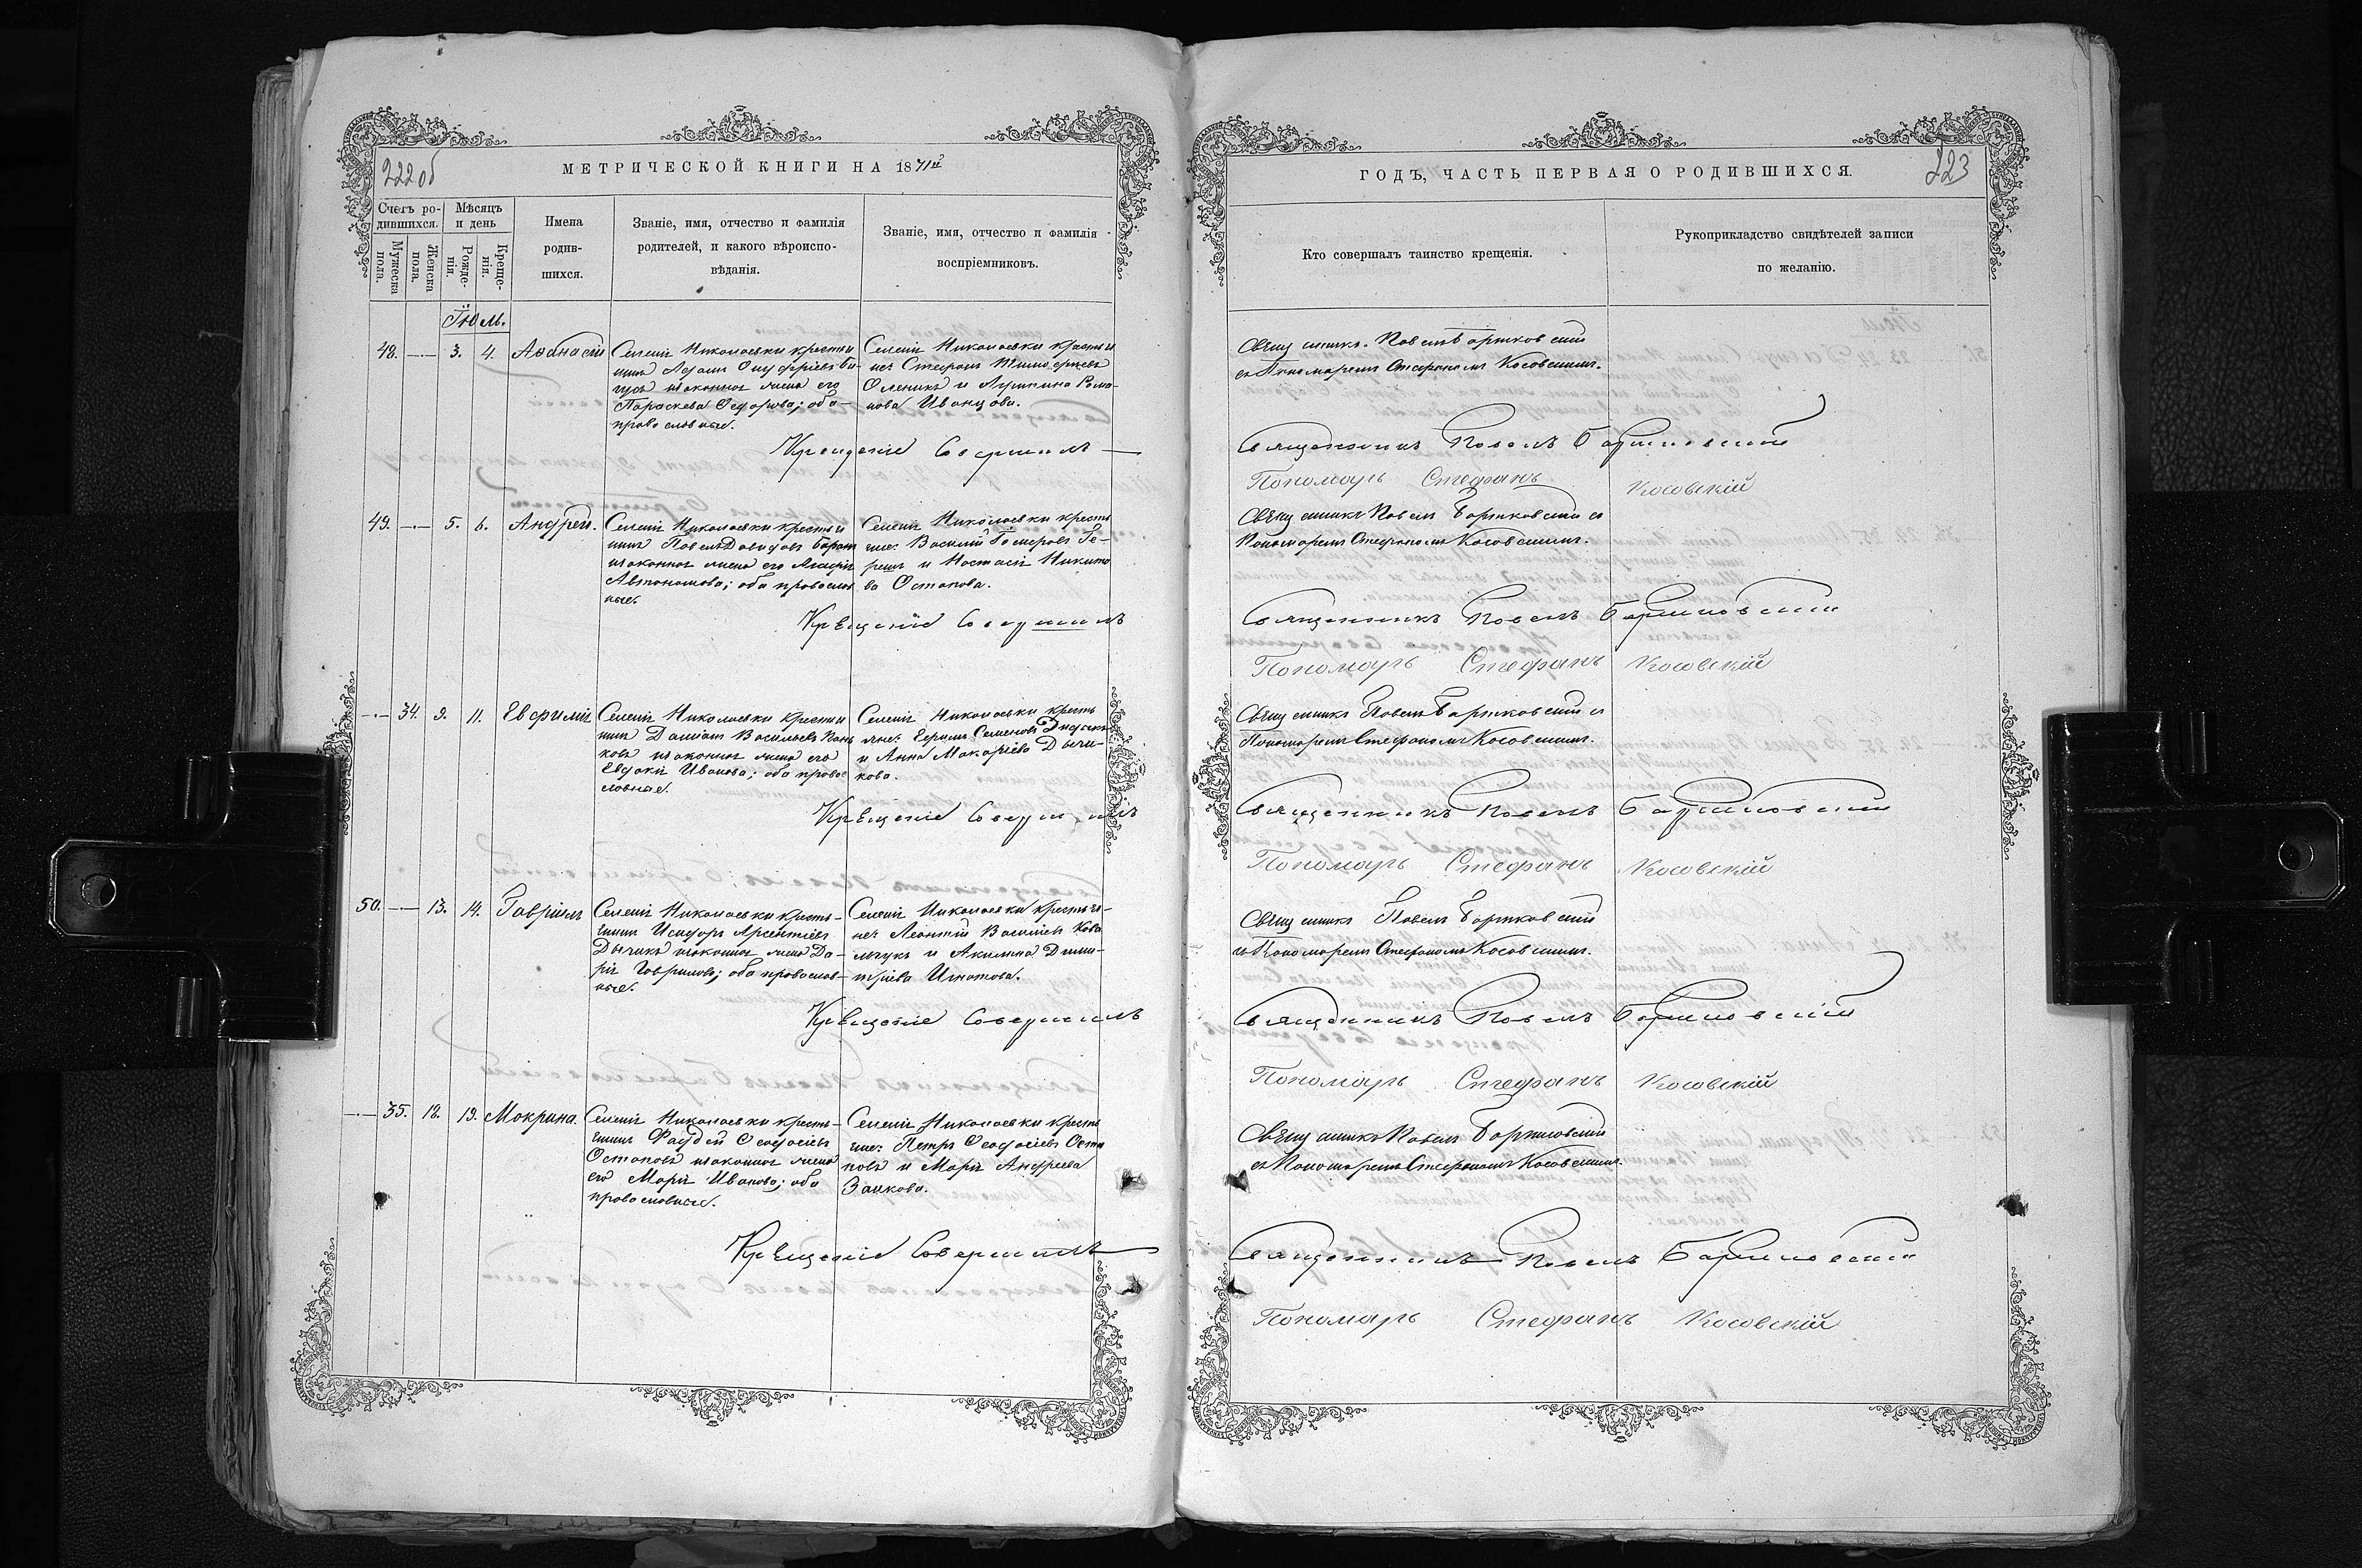 222об
МЕТРИЧЕСКОЙ КНИГИ НА 1871й
Счетъ ро-
дившихся.
Мѣсяцъ
и день
Мужеска
пола.
Женска
пола.
Рожде-
нія.
Креще-
нія.
Имена
родив-
шихся.
Званіе, имя, отчество и фамилія
родителей, и какого вѣроиспо-
вѣданія.
Званіе, имя, отчество и фамилія
воспріемниковъ.
48. 3. 4. Аѳанасій
Селенія Николаевки крестья
нинъ Адамъ Онуфріевъ
законная жена его
Параскева Ѳедорова; оба
православные.
Селенія Николаевки крестья
не: Стефанъ Тимофіевъ
Оленикъ и Рома-
нова Иванцова.
Крещеніе Совершилъ
49. 5. 6. Андрей.
Селенія Николаевки крестья
нинъ Павелъ Давидовъ
законная жена его Агафія
Автономова; оба православ
ные.
Селенія Николаевки кресть
яне: Василій
и Настасія Никито
ва Остапова.
Крещеніе Совершилъ
34. 9. 11. Евфимія
Селенія Николаевки крестья
нинъ Даміанъ Васильевъ
кова законная жена его
Евдокія Иванова; оба право
славные.
Селенія Николаевки кресть
яне: Ефремъ Семеновъ
и Анна Макаріева Дычи-
кова.
Крещеніе Совершилъ
50. 13. 14. Гавріилъ
Селенія Николаевки кресть-
янинъ Исидоръ Арсентіевъ
Дычикъ законная жена Да-
рія Гаврилова; оба православ-
ные.
Селенія Николаевки крестья-
не: Леонтій Васильевъ Кова
льчукъ и Акилина Дими-
тріева Игнатова.
Крещеніе Совершилъ
35. 18. 19. Мокрина.
Селенія Николаевки кресть-
янинъ Фаддей Ѳеодосіевъ
Остаповъ законная жена
его Марія Иванова; оба
православные.
Селенія Николаевки кресть
яне: Петръ Ѳеодосіевъ Оста
повъ и Марія Андреева
Заикова.
Крещеніе Совершилъ
ГОДЪ, ЧАСТЬ ПЕРВАЯ О РОДИВШИХСЯ.
223
Кто совершалъ таинство крещенія.
Рукоприкладство свидѣтелей записи
по желанію.
Священникъ Павелъ Бортковскій
съ Пономаремъ Стефаномъ Косовскимъ.
Священникъ Павелъ Бортковскій
Пономарь Стефанъ Косовскій
Священникъ Павелъ Бортковскій съ
Пономаремъ Стефаномъ Косовскимъ.
Священникъ Павелъ Бортковскій
Пономарь Стефанъ Косовскій
Священникъ Павелъ Бортковскій съ
Пономаремъ Стефаномъ Косовскимъ.
Священникъ Павелъ Бортковскій
Пономарь Стефанъ Косовскій
Священникъ Павелъ Бортковскій
съ Пономаремъ Стефаномъ Косовскимъ.
Священникъ Павелъ Бортковскій
Пономарь Стефанъ Косовскій
Священникъ Павелъ Бортковскій
съ Пономаремъ Стефаномъ Косовскимъ.
Священникъ Павелъ Бортковскій
Пономарь Стефанъ Косовскій